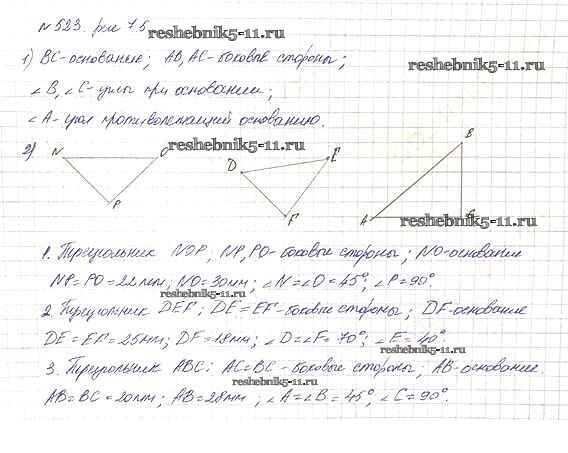 №523. рис 75
reshebnik5-11.ru
1) BC-основание; AB, AC-боковые стороны;
reshebnik5-11.ru
∠B, ∠C-углы при основании;
∠A-угол противолежащий основанию.
2)
reshebnik5-11.ru
N O P
D E F
A B C
reshebnik5-11.ru
1. Треугольник NOP; NP, PO-боковые стороны; NO-основание
NP=PO=22мм; NO=30мм; ∠N=∠O=45°; ∠P=90°
reshebnik5-11.ru
2. Треугольник DEF; DE=EF-боковые стороны; DF-основание
DE=EF=25мм; DF=18мм; ∠D=∠F=70°; ∠E=40°.
reshebnik5-11.ru
3. Треугольник ABC: AC=BC-боковые стороны; AB-основание.
reshebnik5-11.ru
AB=BC=20мм; AB=28мм; ∠A=∠B=45°, ∠C=90°.